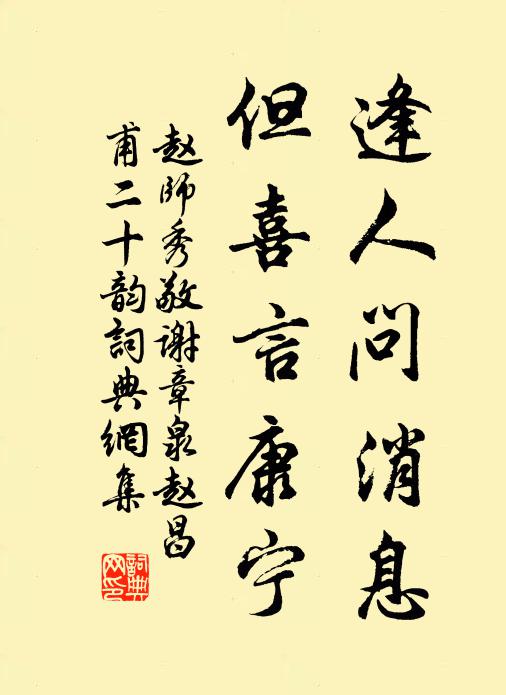 逢人问消息
但喜言康宁
赵师秀敬谢章泉赵昌
甫二十韵词典網集
詞典
网印